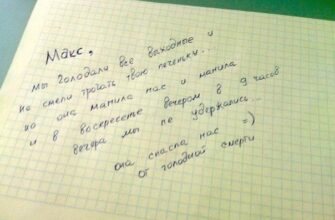 Макс,
мы голодали все выходные и
не смели трогать твою печеньку...
но она манила нас и манила
и в воскресенье вечером в 9 часов
вечера мы не удержались...
она спасла нас =)
от голодной смерти